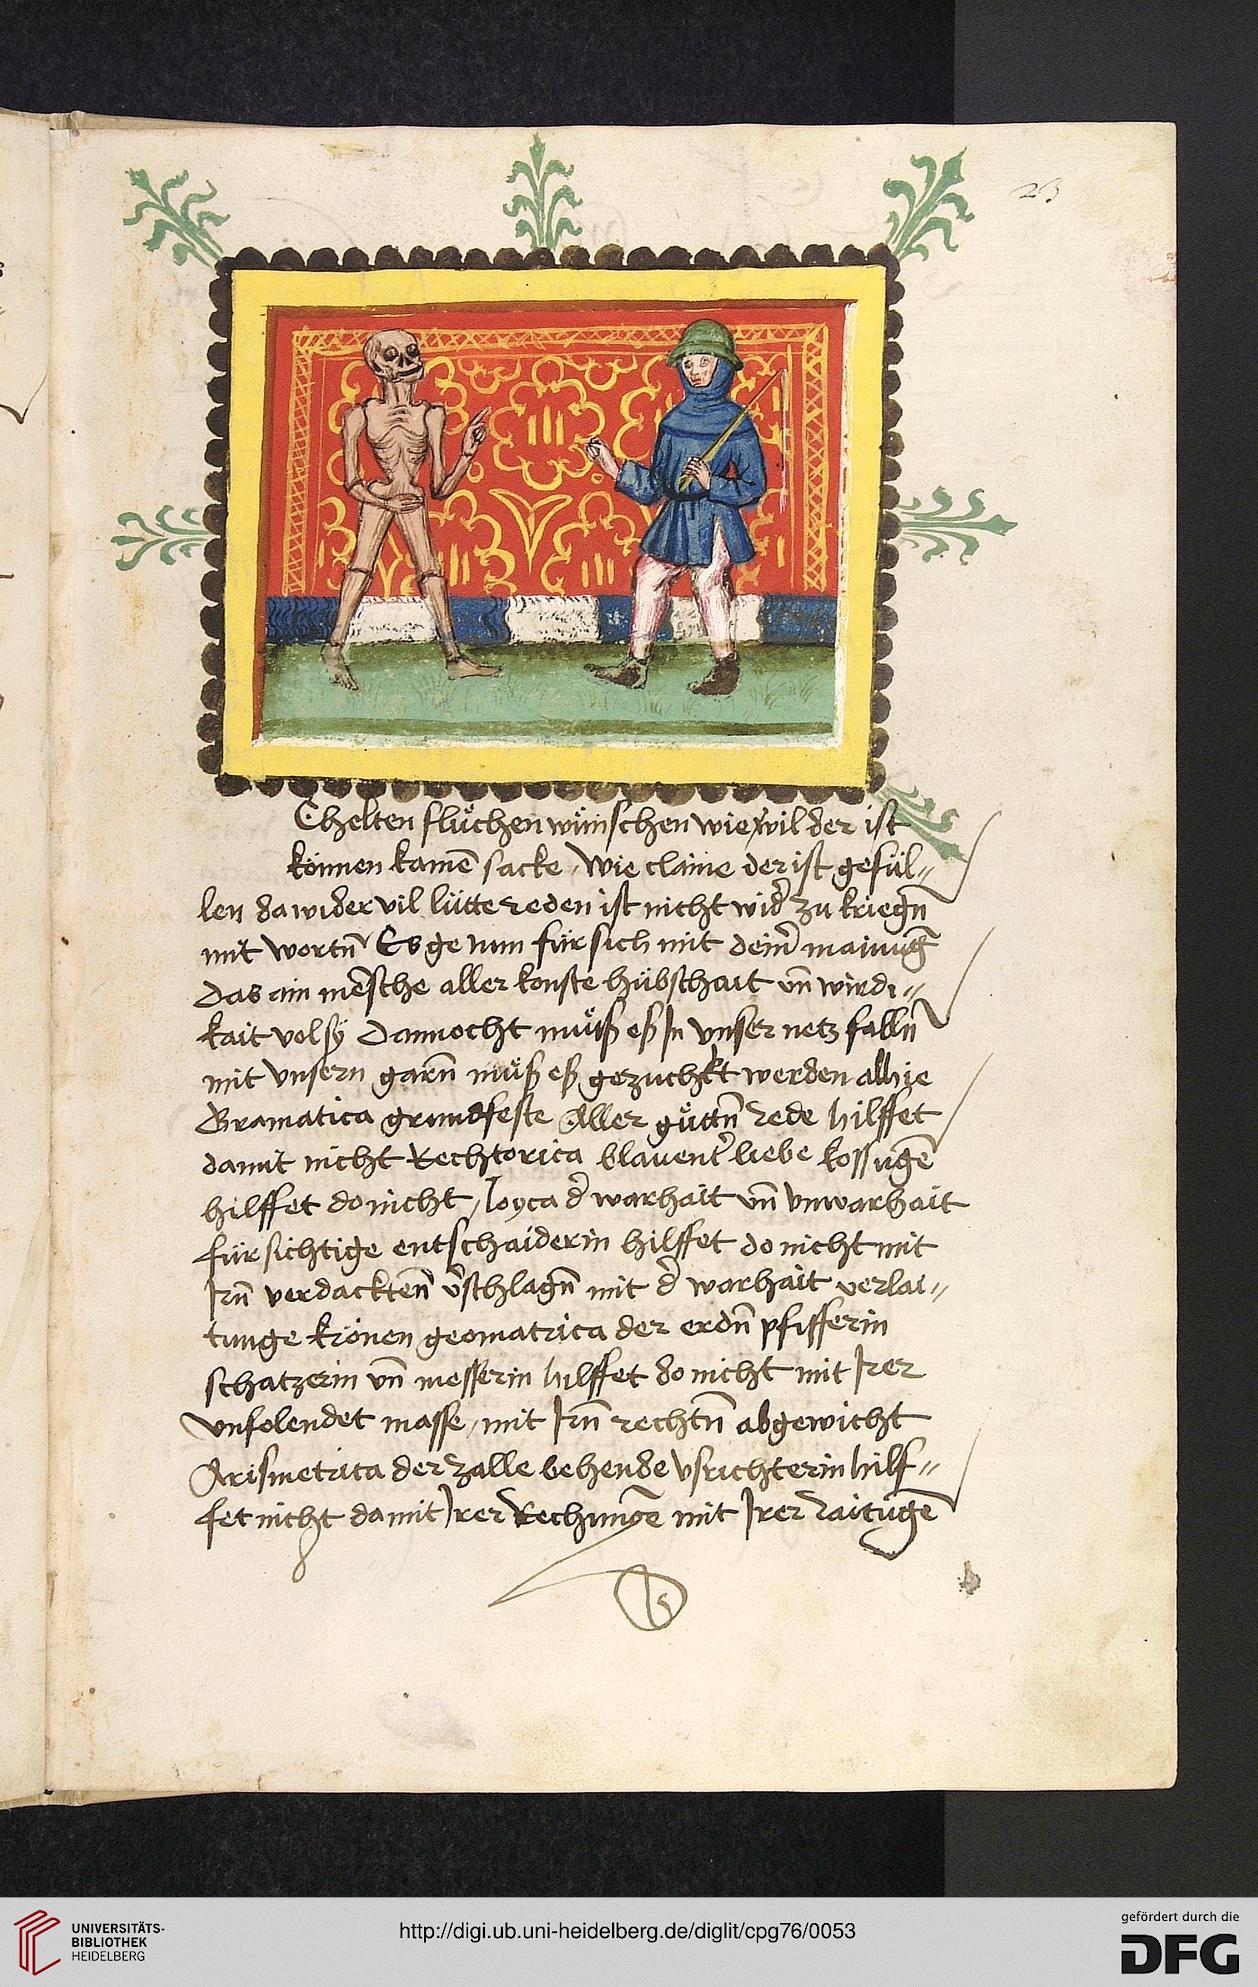 23
Chelten flüchen wünschen wie wil der ist
können kainē sacke / wie claine der ist gefül〃
len da wider vil lütte reden ist nicht wid̕ zu kriegn̄
mit wortn̄ Es ge nun für sich mit deīn̄ mainūg
Das ain mēsche aller konste hübschait vn̄ wirdi〃
kait vol sÿ Dannocht müß eß In vnser netz falln̄
mit vnsern garn̄ müß eß gezuchkt werden alhie
Gramatica grundfeste Aller güttn̄ rede hilffet
damit nicht Rechtorica blauent̕ liebe kossūgē
hilffet do nicht / loyca d̕ warhait vn̄ vnwarhait
fürsichtige entschaiderin hilffet do nicht mit
Irn̄ verdacktenn̄ v̕schlagn̄ mit d̕ warhait verlai〃
tunge krönen geomatrica der erdn̄ pfifferin
schatzerin vn̄ messerin hilffet do nicht mit Irer
vnfolendet masse / mit Irn̄ rechtn̄ abgewicht
Arismetrica der zalle behende vsrichterin hilf〃
fet nicht damit Irer Rechnūge mit Irer raitūgē
UNIVERSITÄTS-
BIBLIOTHEK
HEIDELBERG
http://digi.ub.uni-heidelberg.de/diglit/cpg76/0053
gefördert durch die
DFG